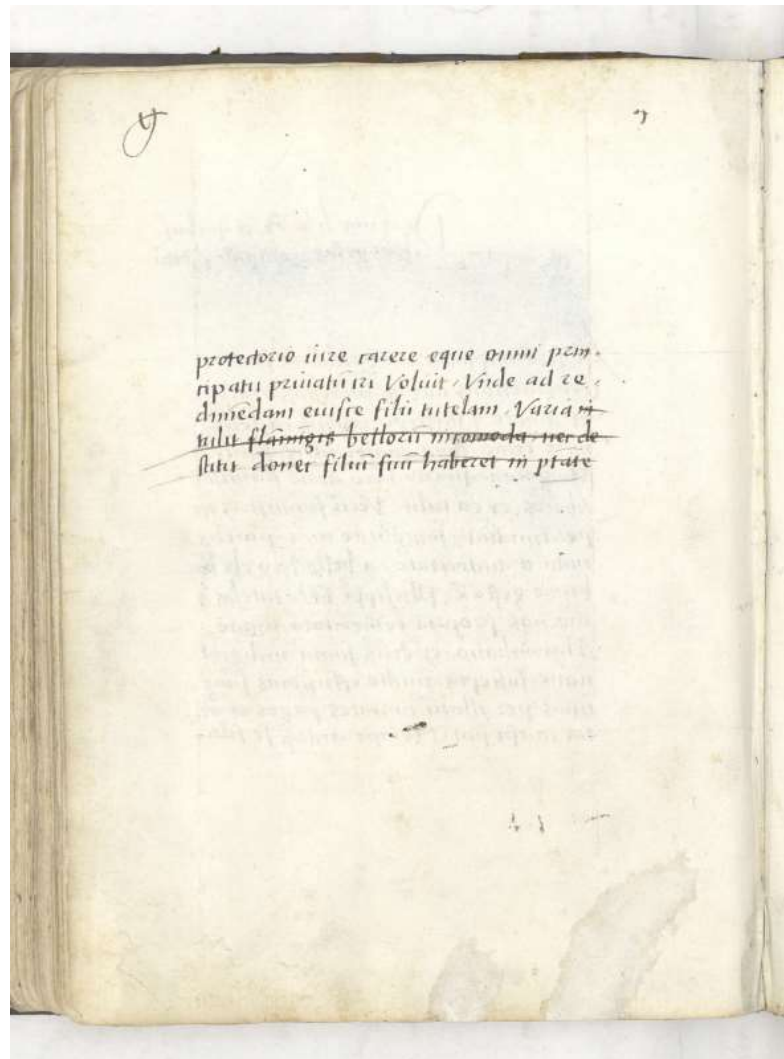 protectorio iure carere eque omni prin-
cipatu priuatū iri Voluit. Vnde ad re-
dimēdam eiusce filii tutelam. Varia in
tulit flāmīgis bellorū incōmoda nec de
stitit donec filiū suū haberet in ptāte